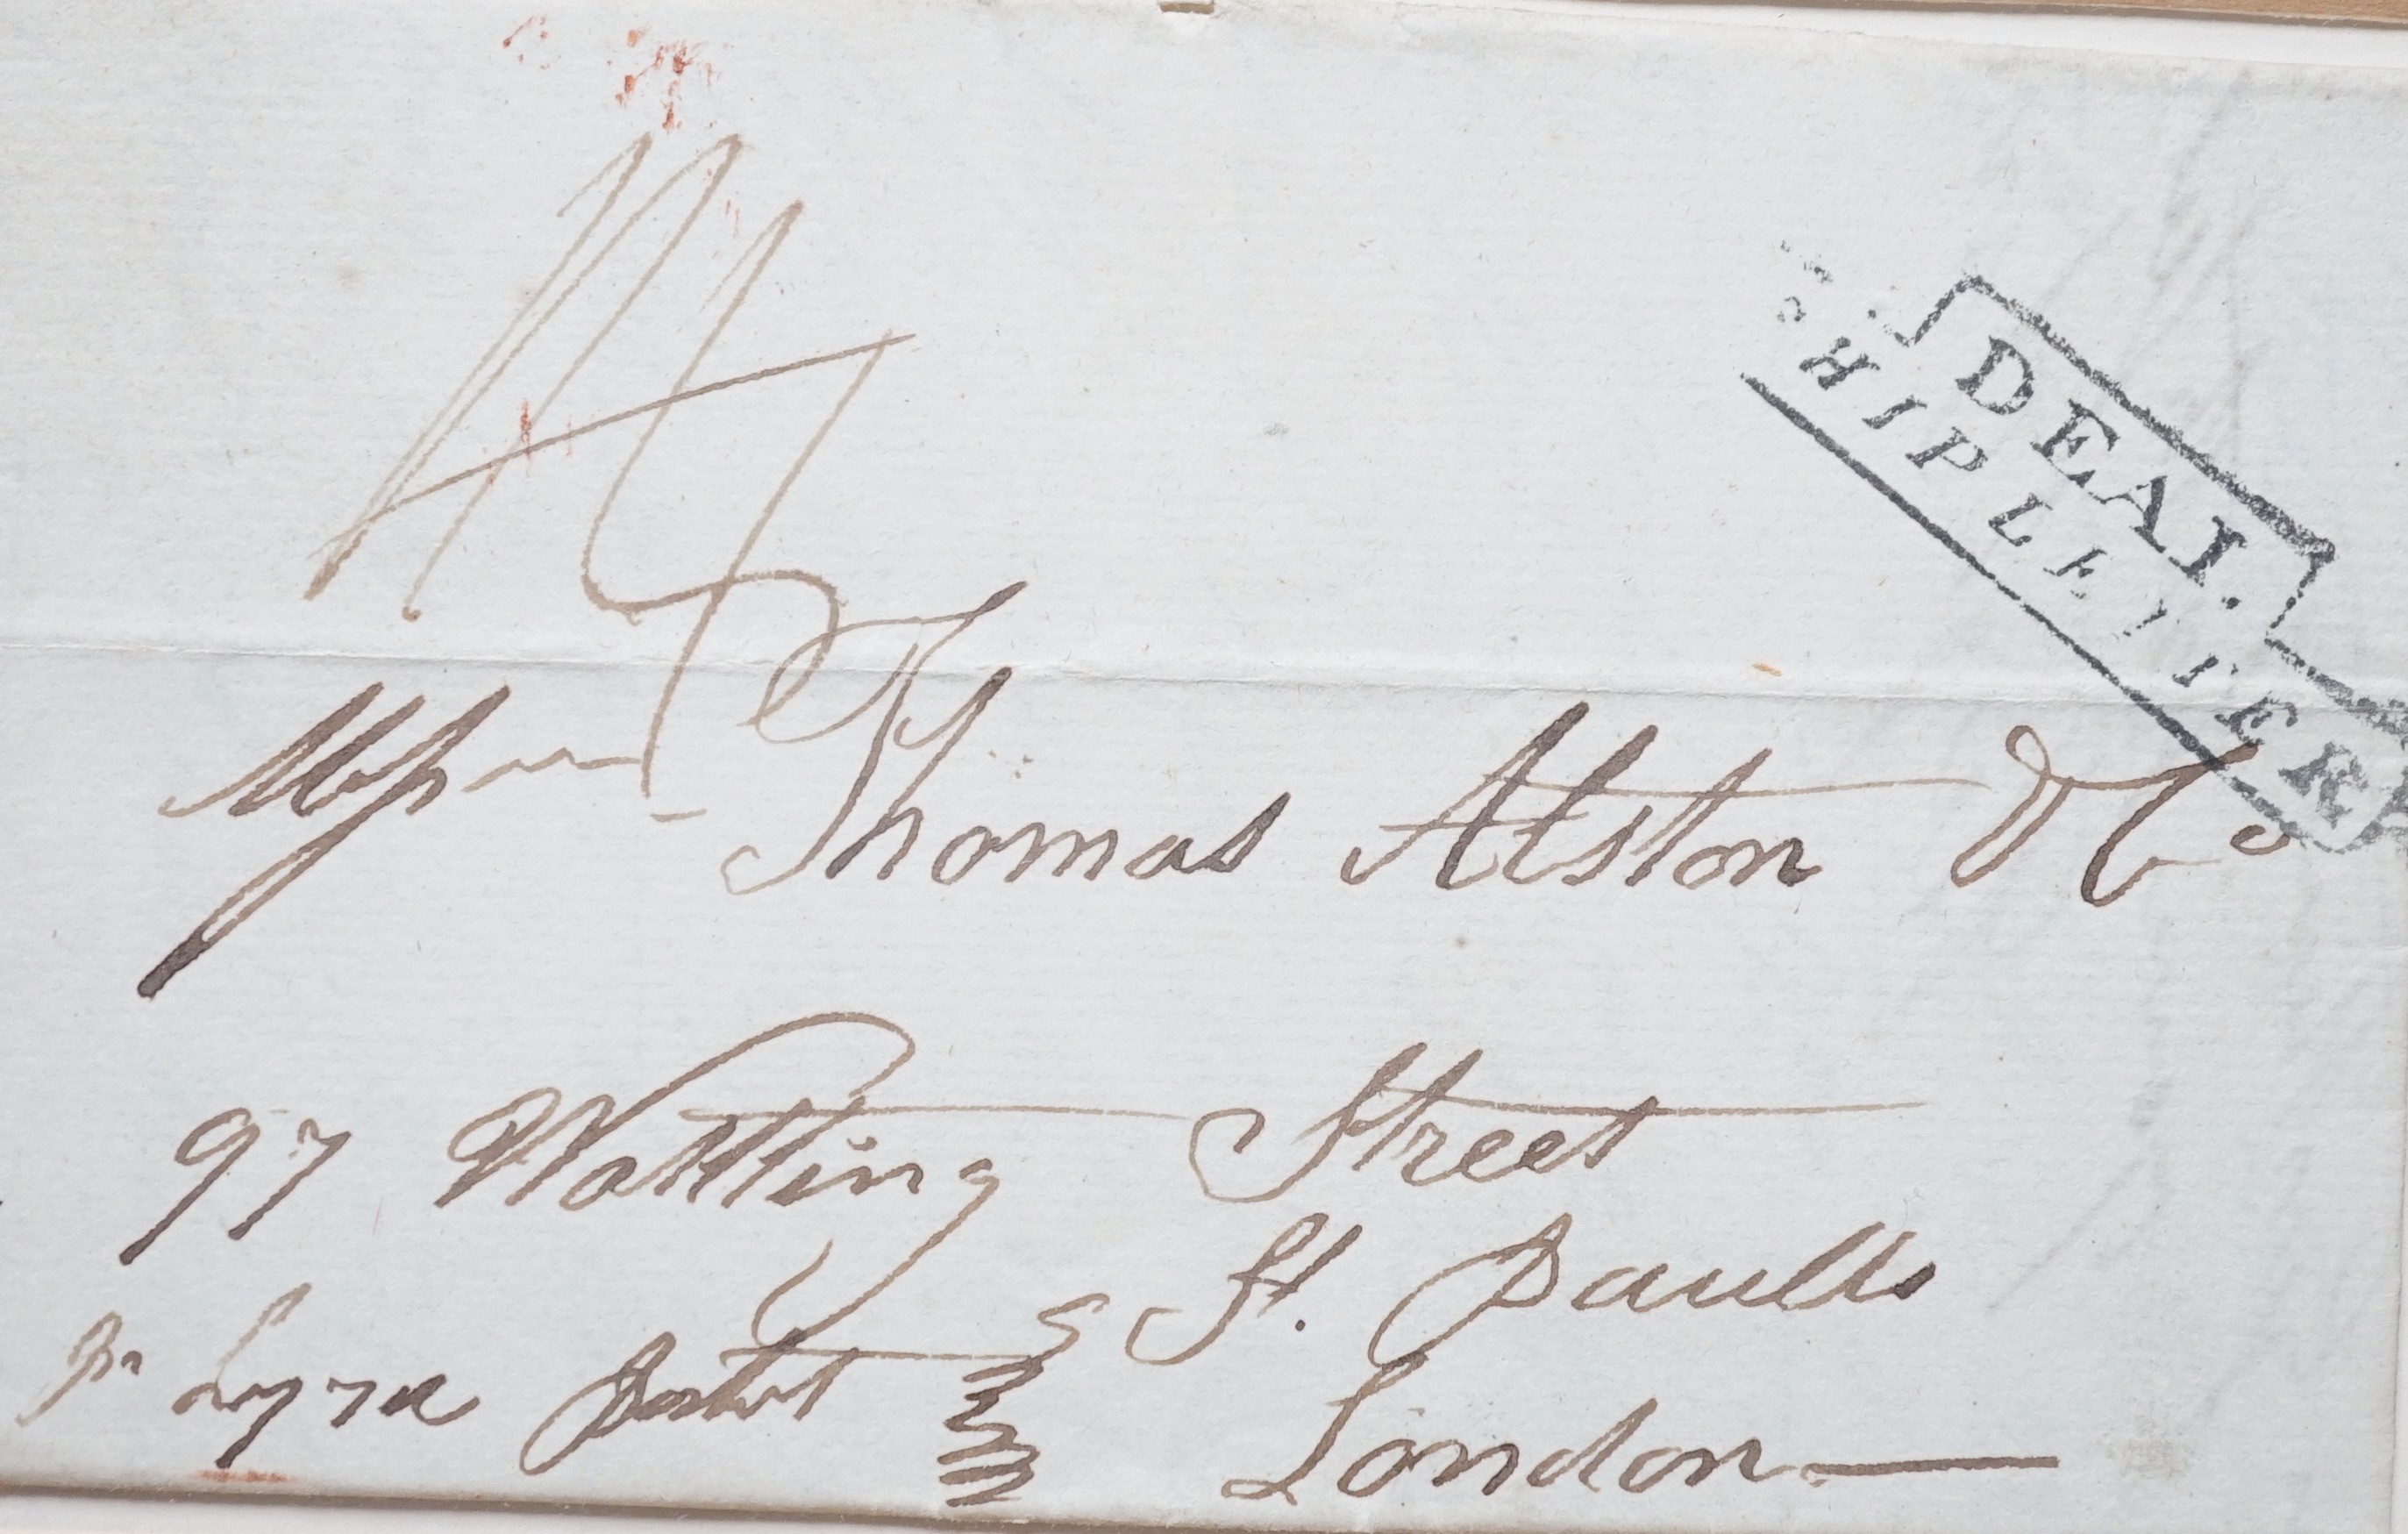 DEAL
SHIP LETTER
Messrs Thomas Alston & Co
97 Wattling Street
St. Paulls
pr Lyra Packet
London